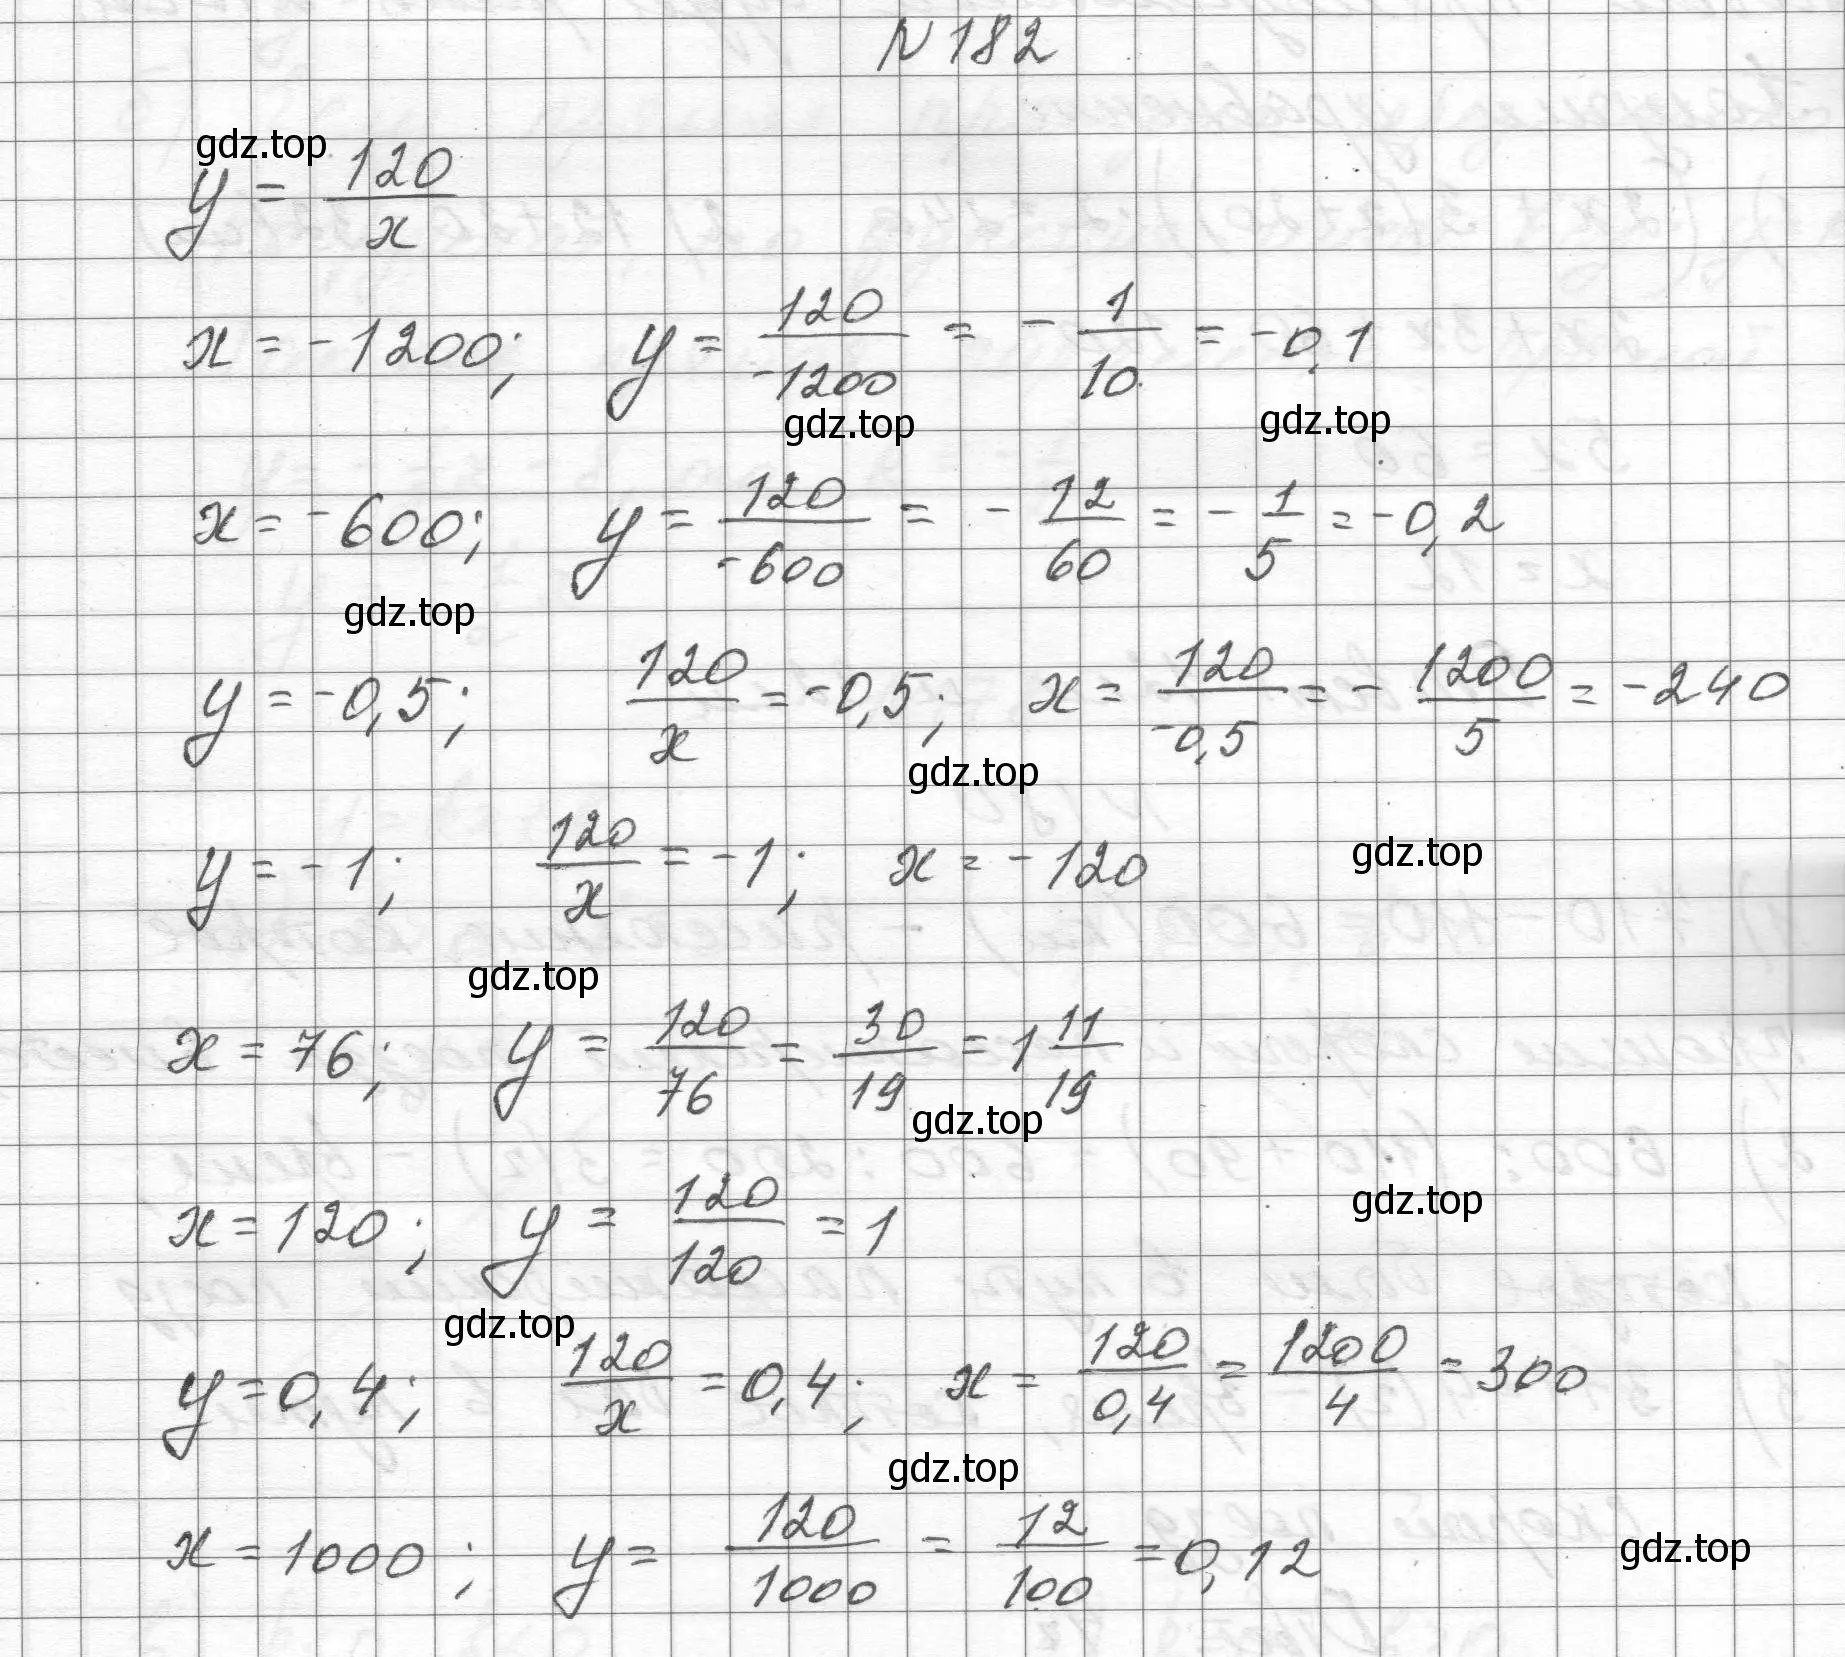 № 182
gdz.top
y = 120/x
x = -1200; y = 120/-1200 = - 1/10 = -0,1
gdz.top gdz.top
x = -600; y = 120/-600 = - 12/60 = - 1/5 = -0,2
gdz.top
y = -0,5; 120/x = -0,5; x = 120/-0,5 = - 1200/5 = -240
gdz.top
y = -1; 120/x = -1; x = -120
gdz.top
gdz.top
x = 76; y = 120/76 = 30/19 = 1 11/19
gdz.top
x = 120; y = 120/120 = 1
gdz.top
gdz.top
y = 0,4; 120/x = 0,4; x = 120/0,4 = 1200/4 = 300
gdz.top
x = 1000; y = 120/1000 = 12/100 = 0,12
gdz.top